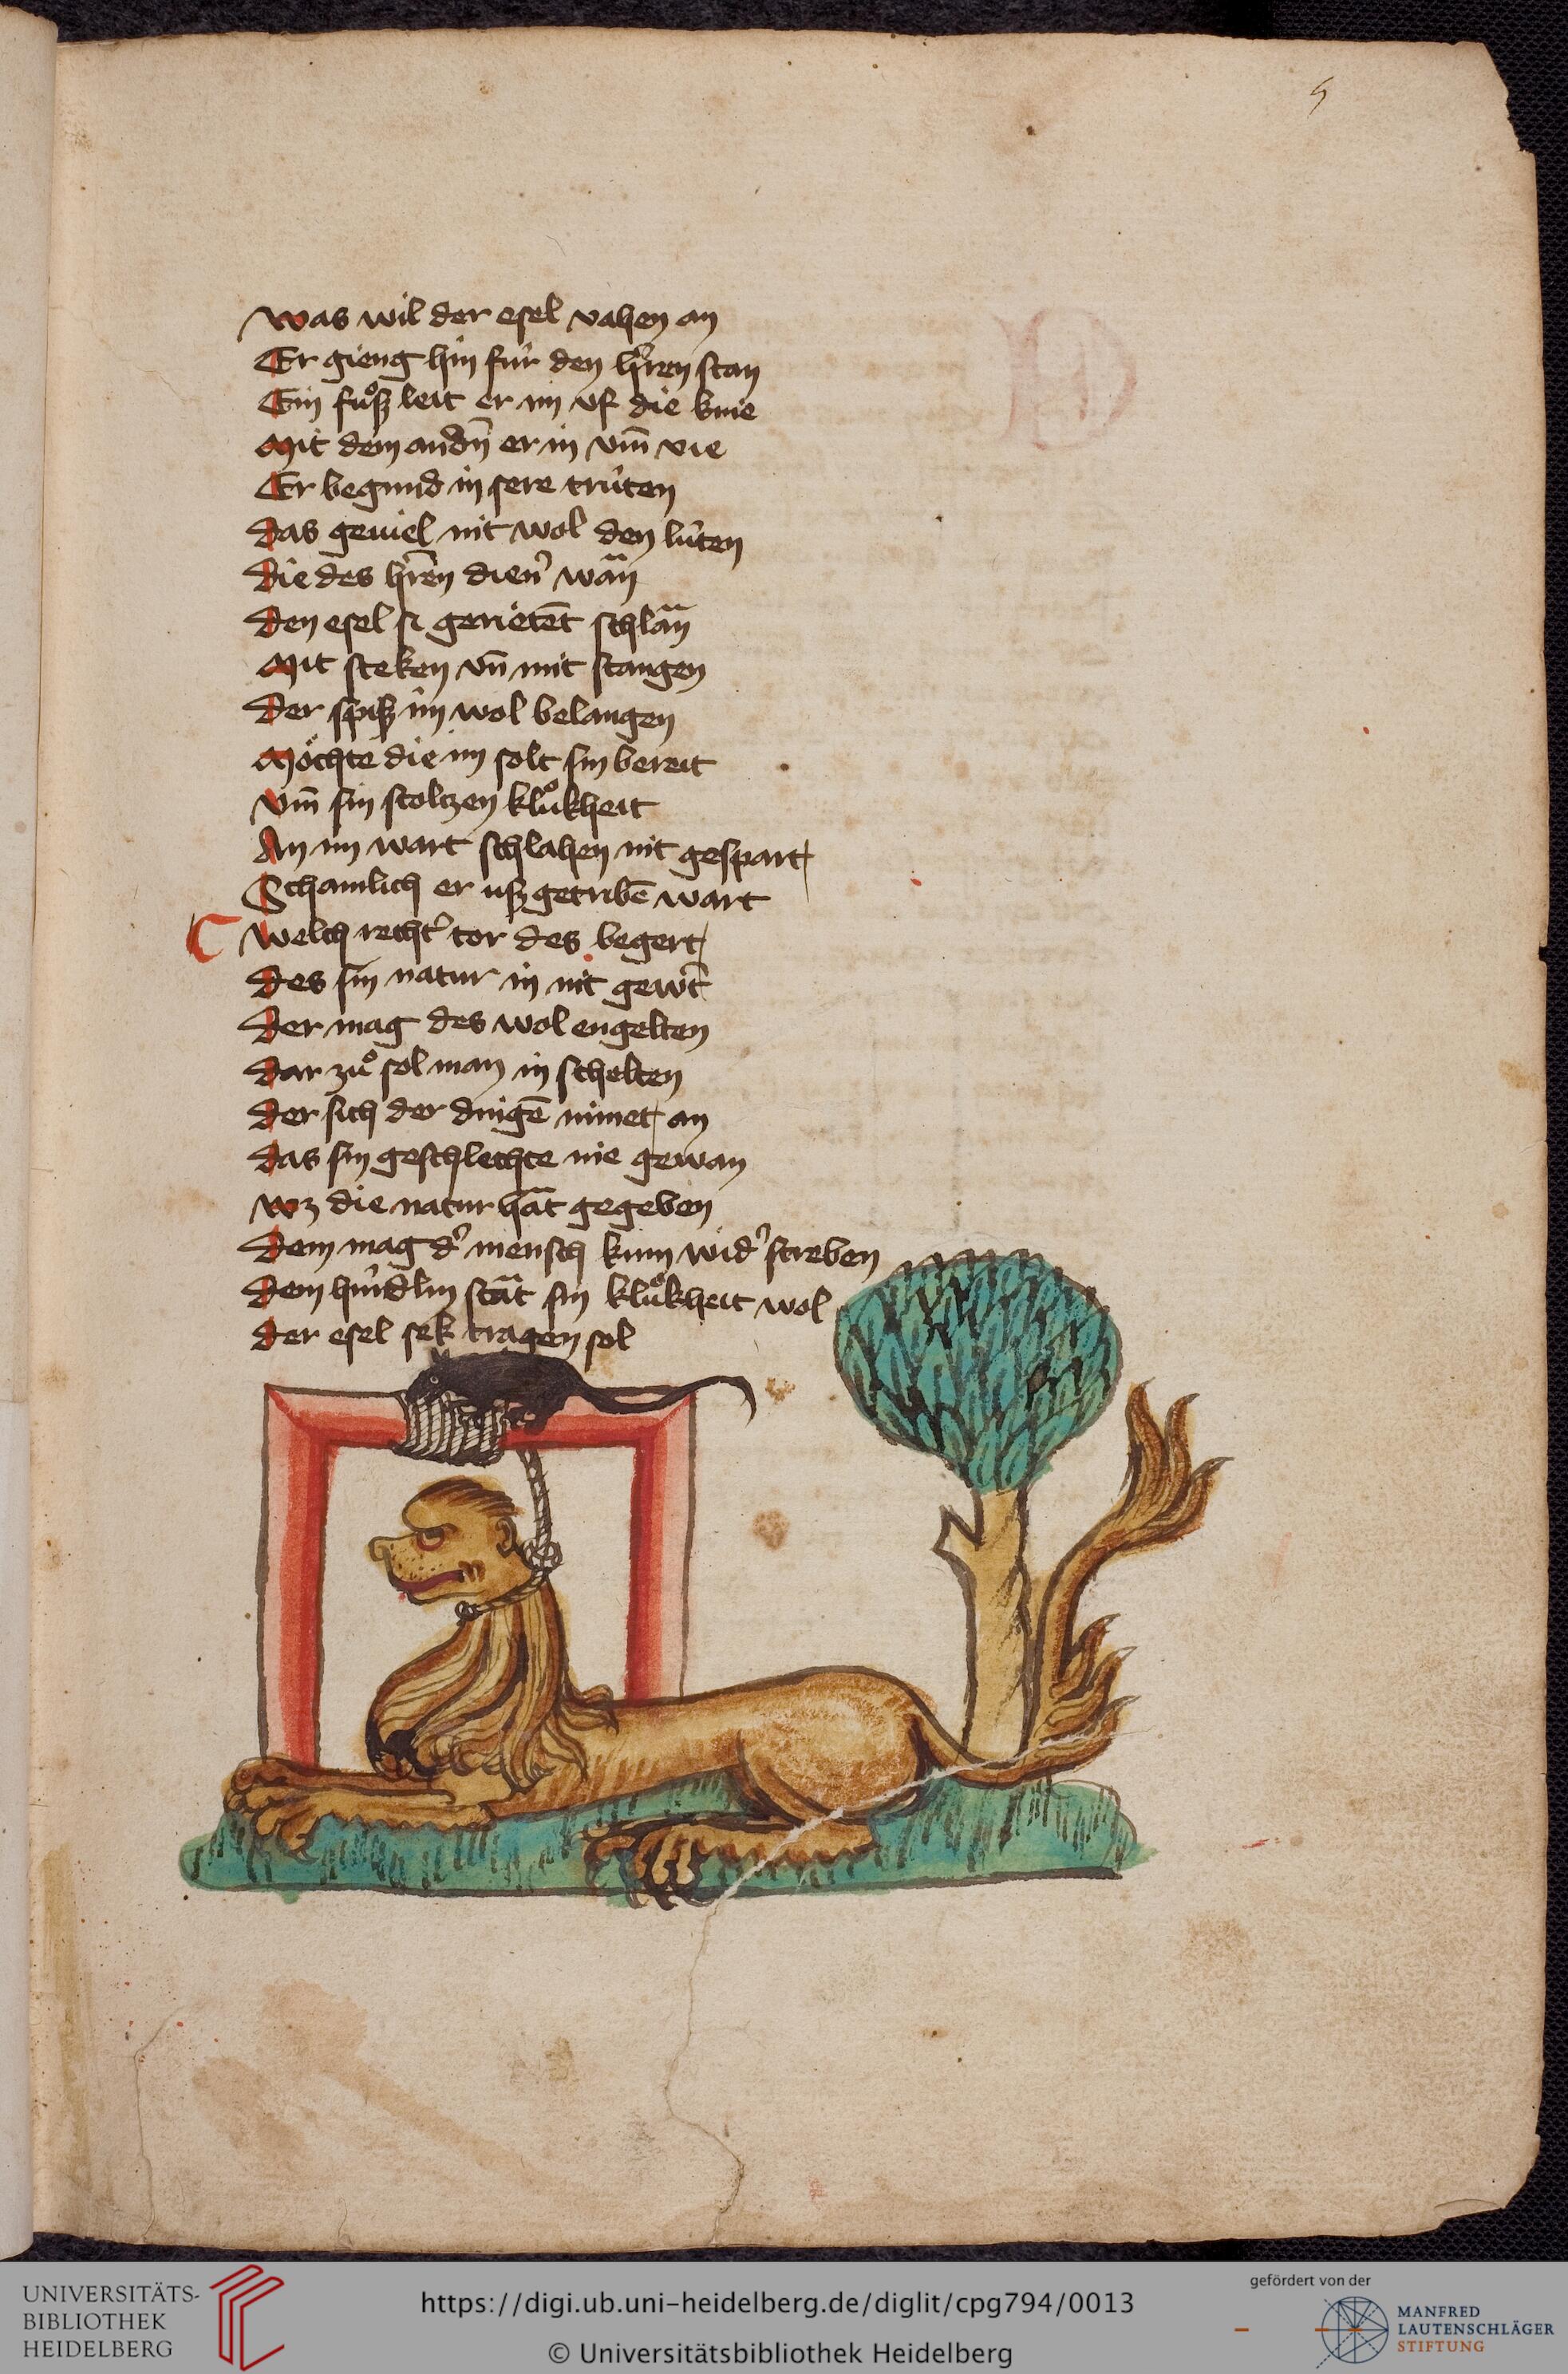 5
Was wil der esel vahen an
Er gieng hin für den hr̄ren stan
Ein fuͦß leit er im vf die knie
Mit dem andn̄ er in vm̄ vie
Er begund in sere trúten
Das geuiel nit wol den lúten
Die des hr̄ren dien͛ wan̄
Den esel si gerietēt schlan̄
Mit steken vn̄ mit stangen
Der spiß im wol belangen
Möchte die im solt sin bereit
Vm̄ sin stoltzen kluͦkheit
An im wart schlahen nit gespart
Schamlich er uß getribē wart
Welch recht͛ tor des begert
Des sin natur in nit gewt̄
Der mag des wol engelten
Dar zuͦ sol man in schelten
Der sich der dingē nimet an
Das sin geschlechte nie gewan
Wz die natur hāt gegeben
Dem mag d͛ mensch kum wid͛ streben
Dem húndlin stāt sin kluͦkheit wol
Der esel sek tragen sol
UNIVERSITÄTS-
BIBLIOTHEK
HEIDELBERG
https://digi.ub.uni-heidelberg.de/diglit/cpg794/0013
© Universitätsbibliothek Heidelberg
gefördert von der
MANFRED
LAUTENSCHLÄGER
STIFTUNG